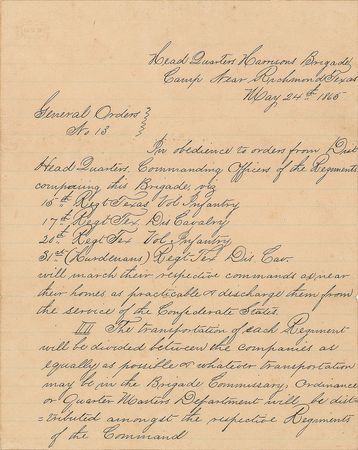 Head Quarters Harrisons Brigade
Camp Near Richmond Texas
May 24th 1865
General Orders
No 13
In obedience to orders from Dist
Head Quarters, Commanding Officers of the Regiments
composing this Brigade, viz
15th Regt Texas Vol Infantry
17th Regt Tex Dis Cavalry
20th Regt Tex Vol Infantry
31st Regt Tex Dis Cav.
will march their respective commands as near
their homes as practicable & discharge them from
the service of the Confederate States.
III The transportation of each Regiment
will be divided between the companies as
equally as possible & whatever transportation
may be in the Brigade Commissary, Ordinance
or Quarter Masters Department will be dist
=tributed amongst the respective Regiments
of the Command